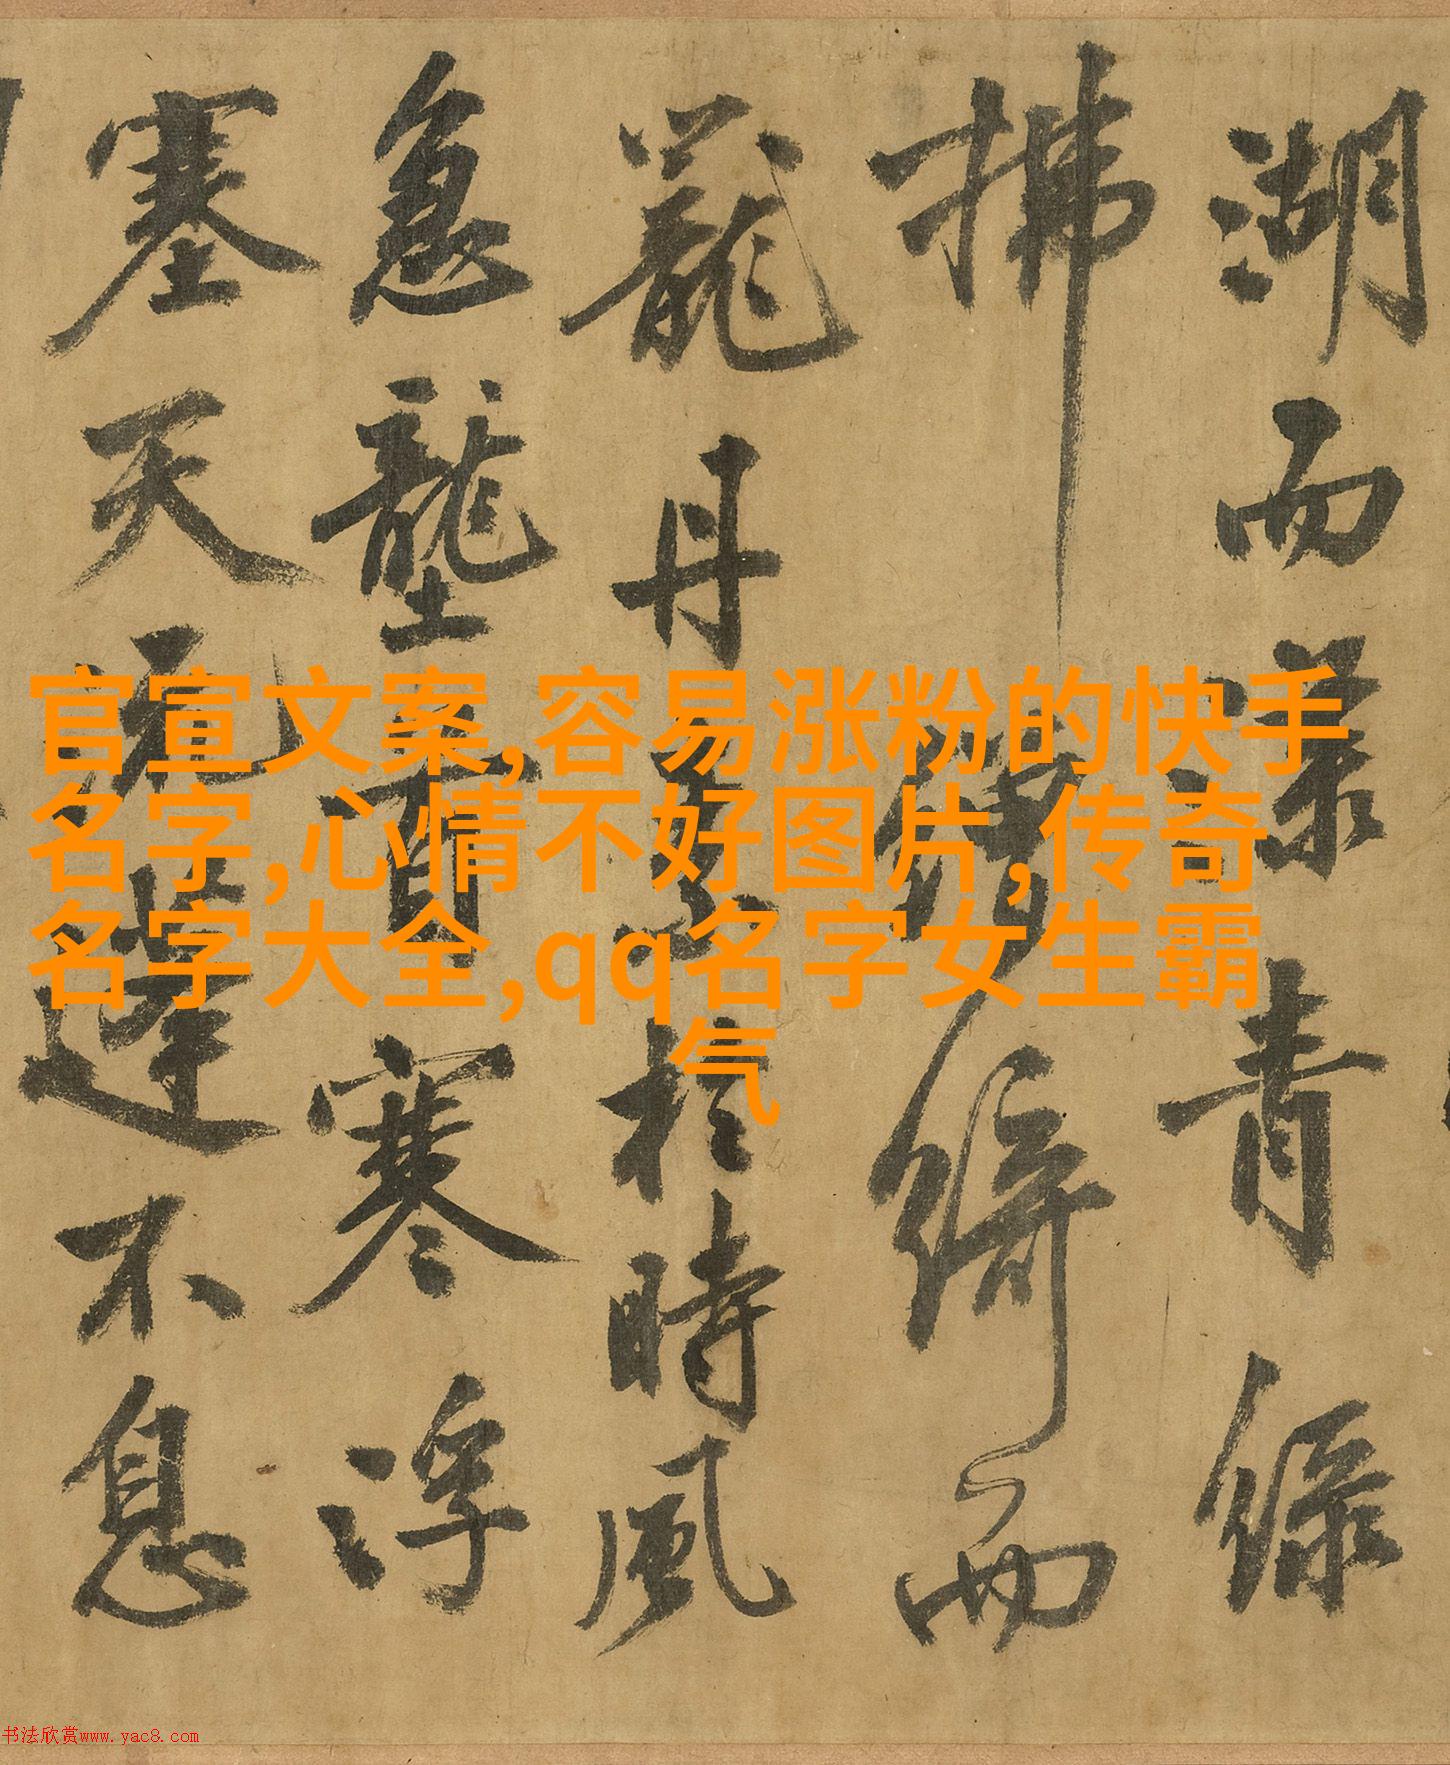 湖而漾青綠
拂錦綺而
蘢丹於時風
急壟首寒浮
塞天流蓬不息
官宣文案,容易涨粉的快手
名字,心情不好图片,传奇
名字大全,qq名字女生霸
气
书法欣赏www.yac8.com